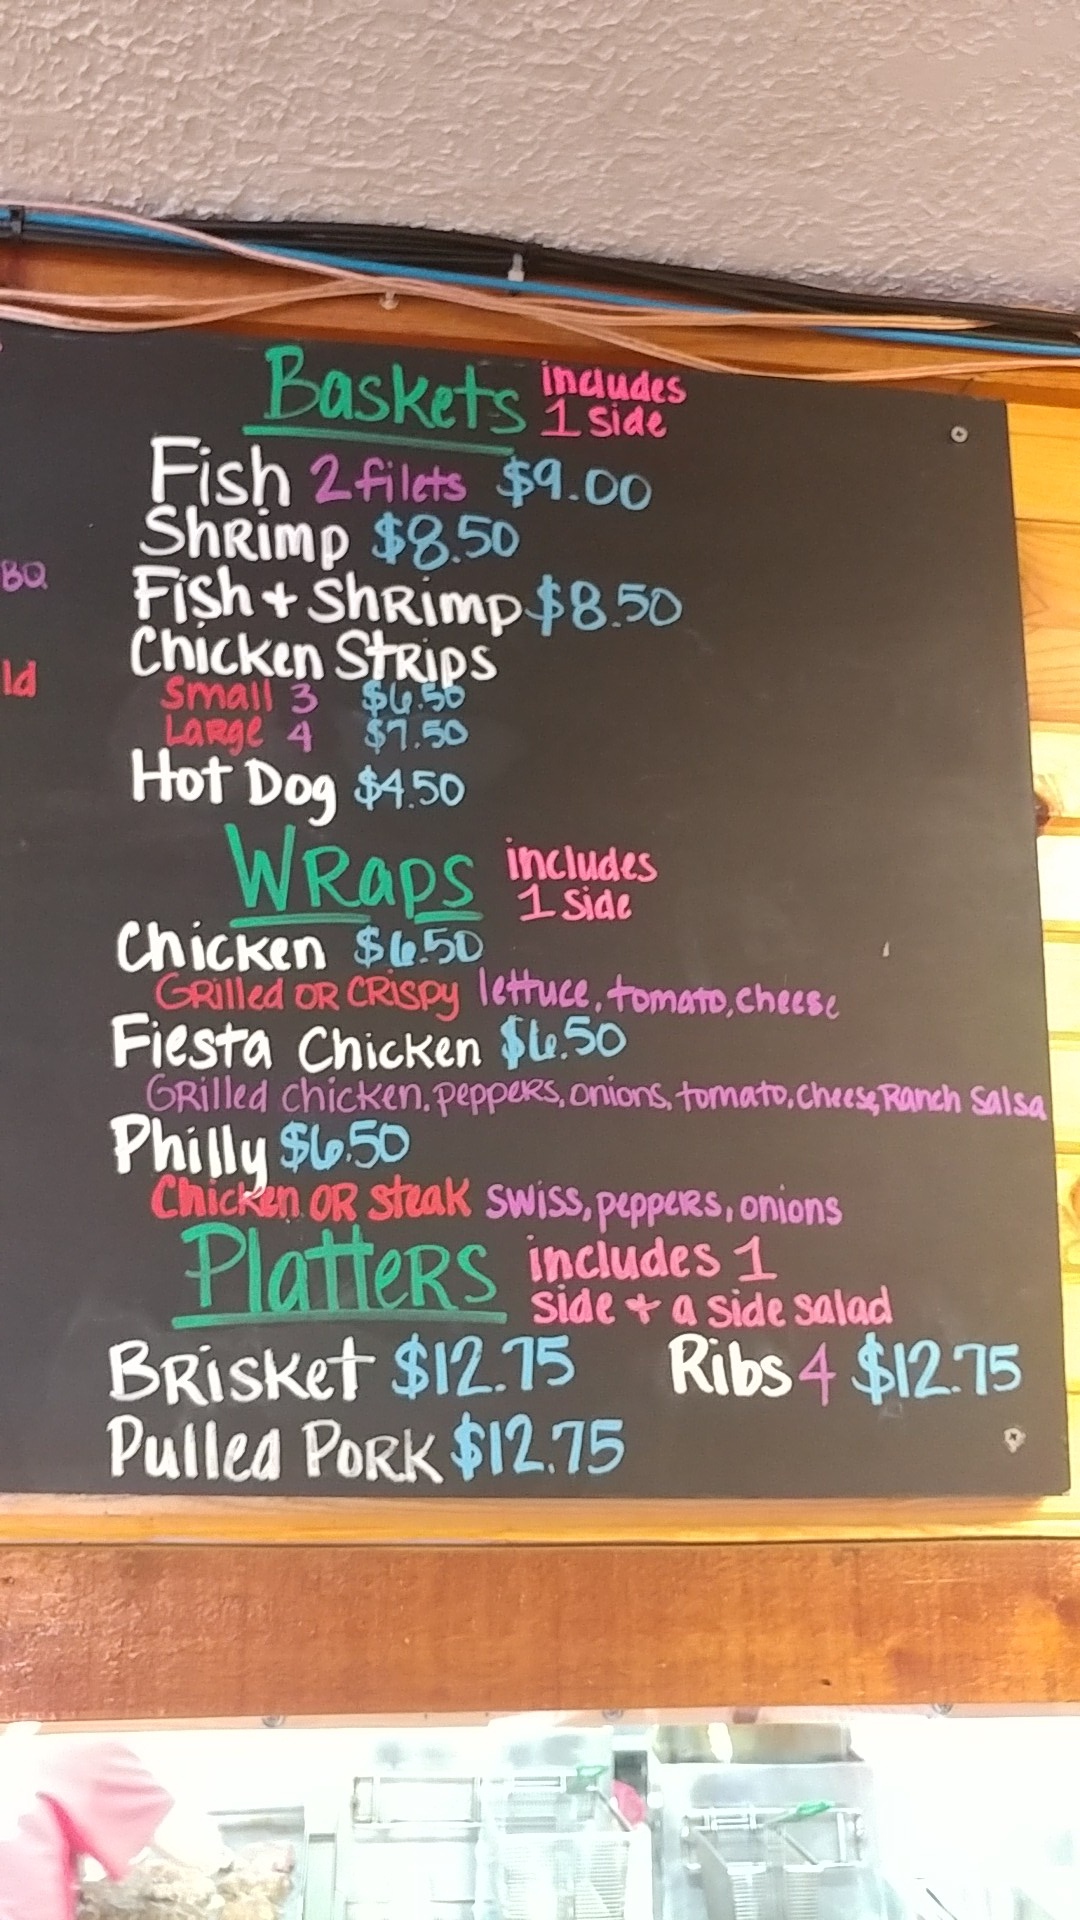 Baskets includes
1 side
Fish 2 filets $9.00
Shrimp $8.50
BQ
Fish + Shrimp $8.50
Chicken Strips
ld
Small 3 $6.50
Large 4 $7.50
Hot Dog $4.50
Wraps includes
1 Side
Chicken $6.50
Grilled or Crispy lettuce, tomato, cheese
Fiesta Chicken $6.50
Grilled chicken, peppers, onions, tomato, cheese, Ranch Salsa
Philly $6.50
Chicken or steak swiss, peppers, onions
Platters includes 1
side + a side salad
Brisket $12.75 Ribs 4 $12.75
Pulled Pork $12.75